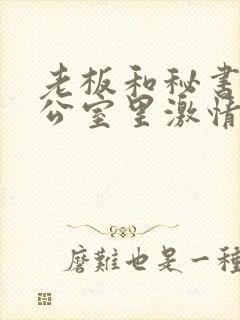 老板和秘书
公室里激情
磨難也是一種